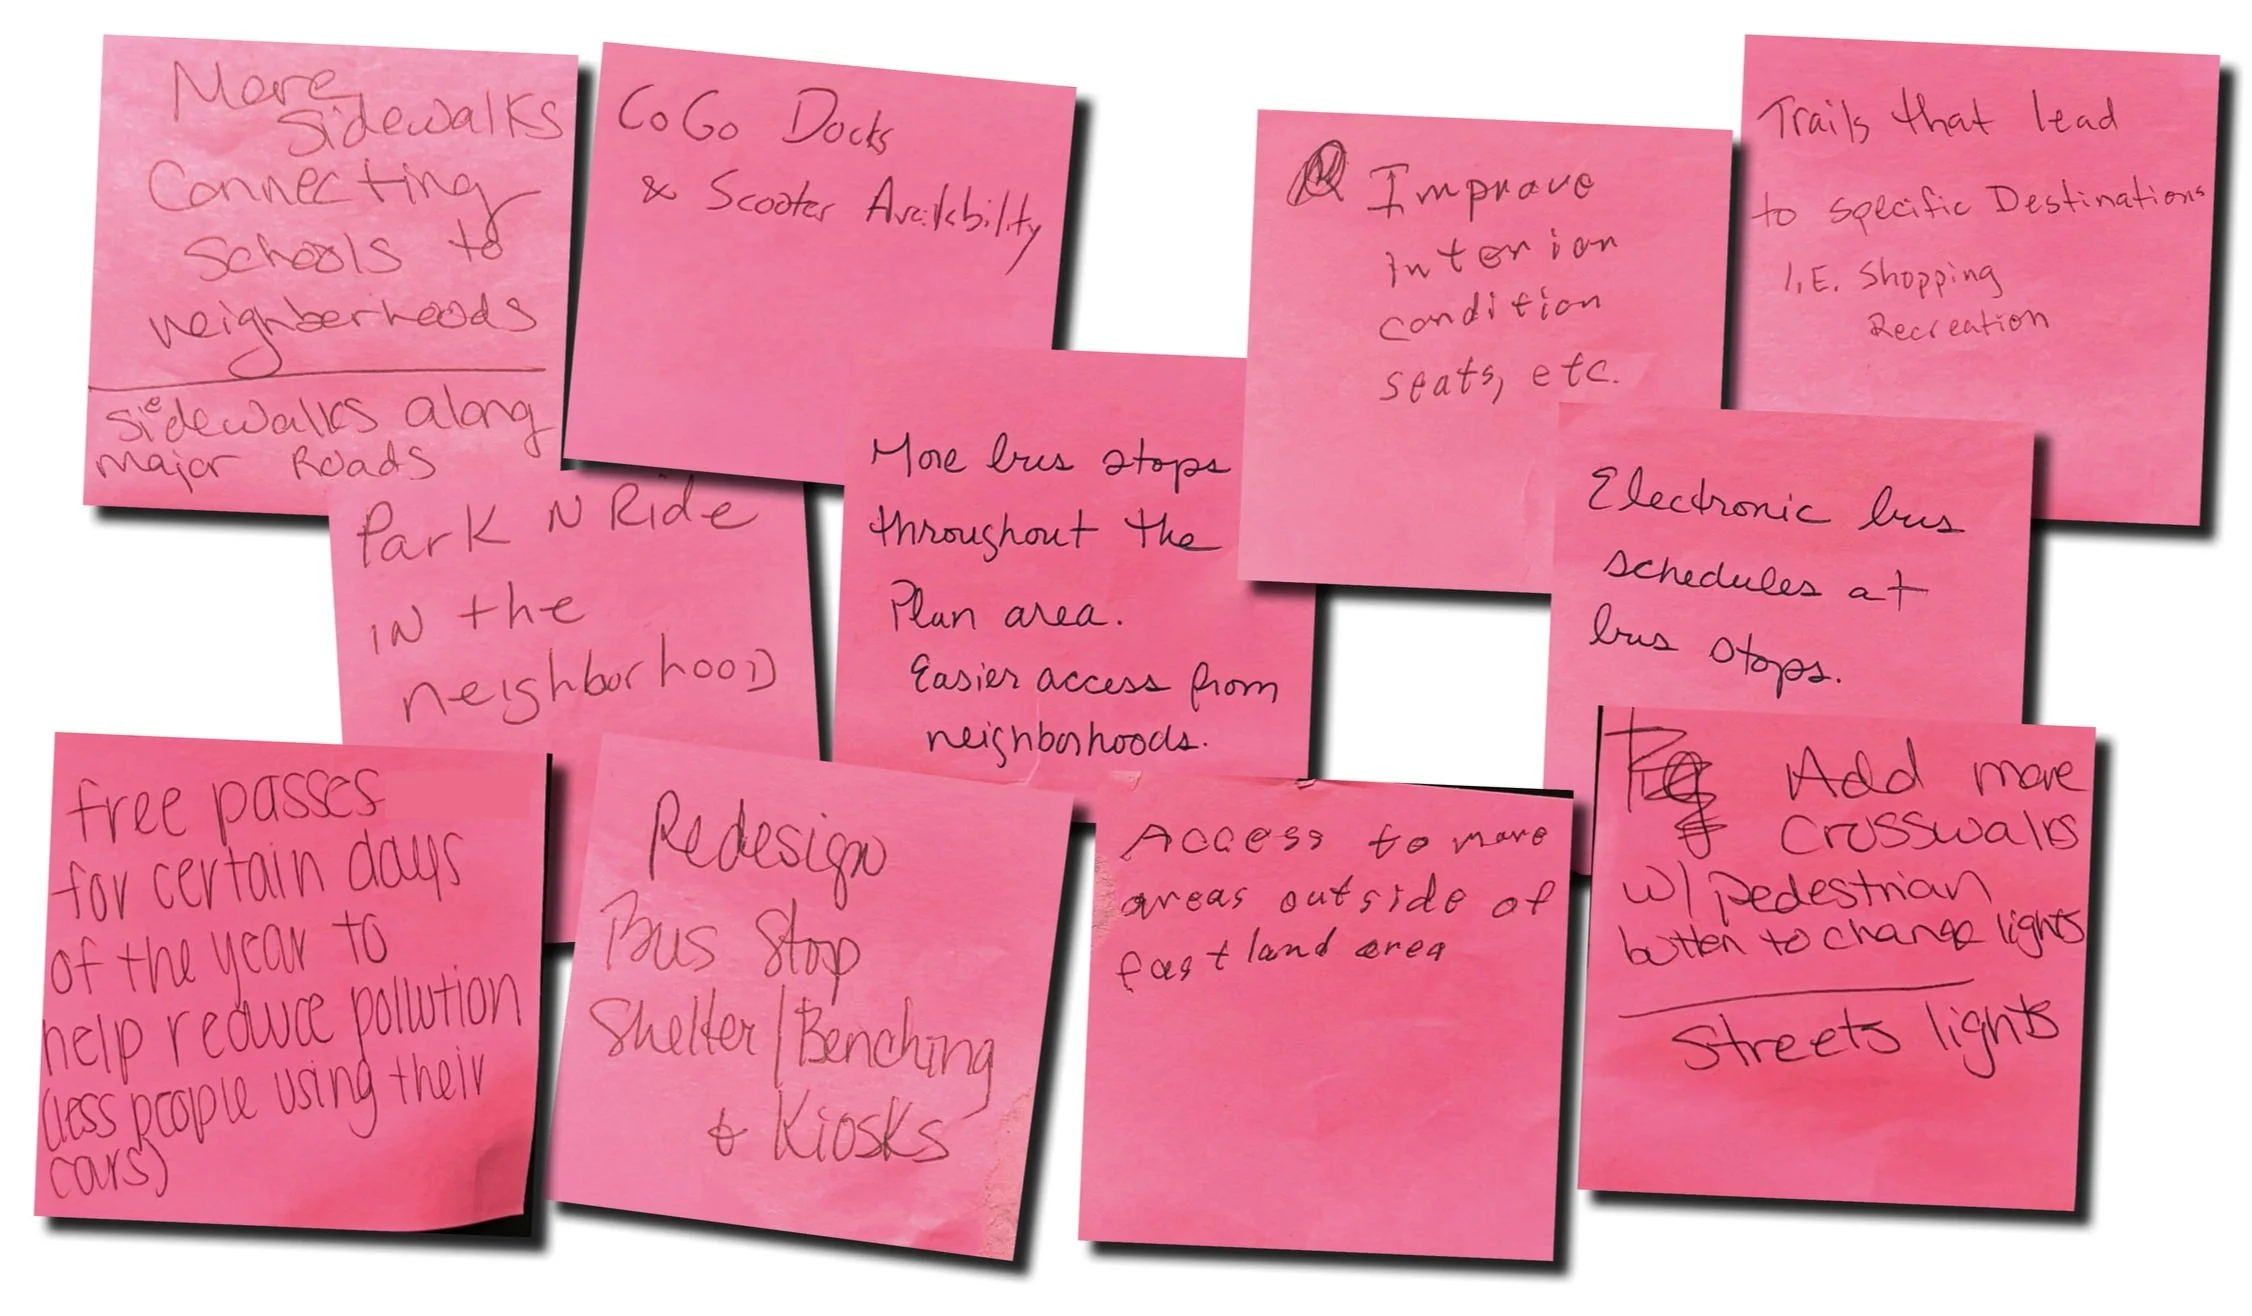 More
sidewalks
Connecting
schools to
neighberhoods
sidewalks along
major Roads
CoGo Docks
& Scooter Availability
Improve
interior
condition
seats, etc.
Trails that lead
to specific Destinations
I.E. Shopping
Recreation
Park N Ride
in the
neighborhood
More bus stops
throughout the
Plan area.
Easier access from
neighborhoods.
Electronic bus
schedules at
bus stops.
free passes
for certain days
of the year to
help reduce pollution
(less people using their
cars)
Redesign
Bus Stop
Shelter/Benching
& Kiosks
Access to more
areas outside of
Eastland area
Add more
Crosswalks
w/ pedestrian
button to change lights
Streets lights